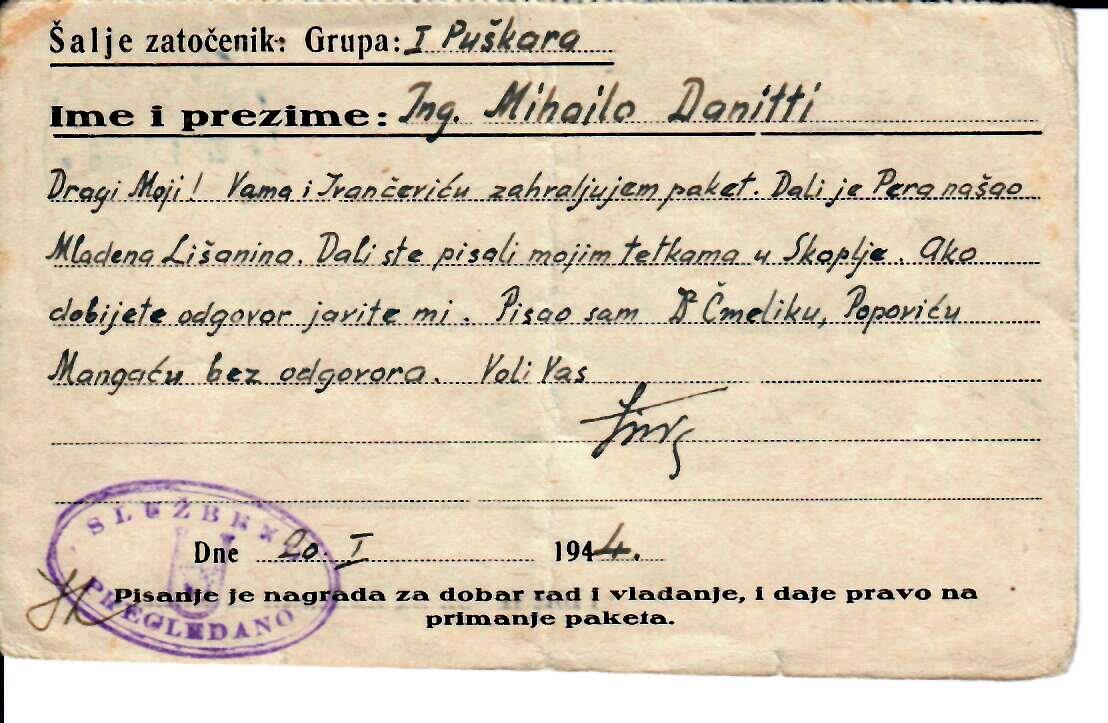 Šalje zatočenik: Grupa: I Puškara
Ime i prezime: Ing. Mihailo Danitti
Dragi Moji! Vama i Ivančeviću zahvaljujem paket. Dali je Pera našao
Mladena Lišanina. Dali ste pisali mojim tetkama u Skoplje. Ako
dobijete odgovor javite mi. Pisao sam Dr Čmeliku, Popoviću
Mangaću bez odgovora. Voli Vas
SLUŽBENO
PREGLEDANO
Dne 20. I 1944.
Pisanje je nagrada za dobar rad i vladanje, i daje pravo na
primanje paketa.